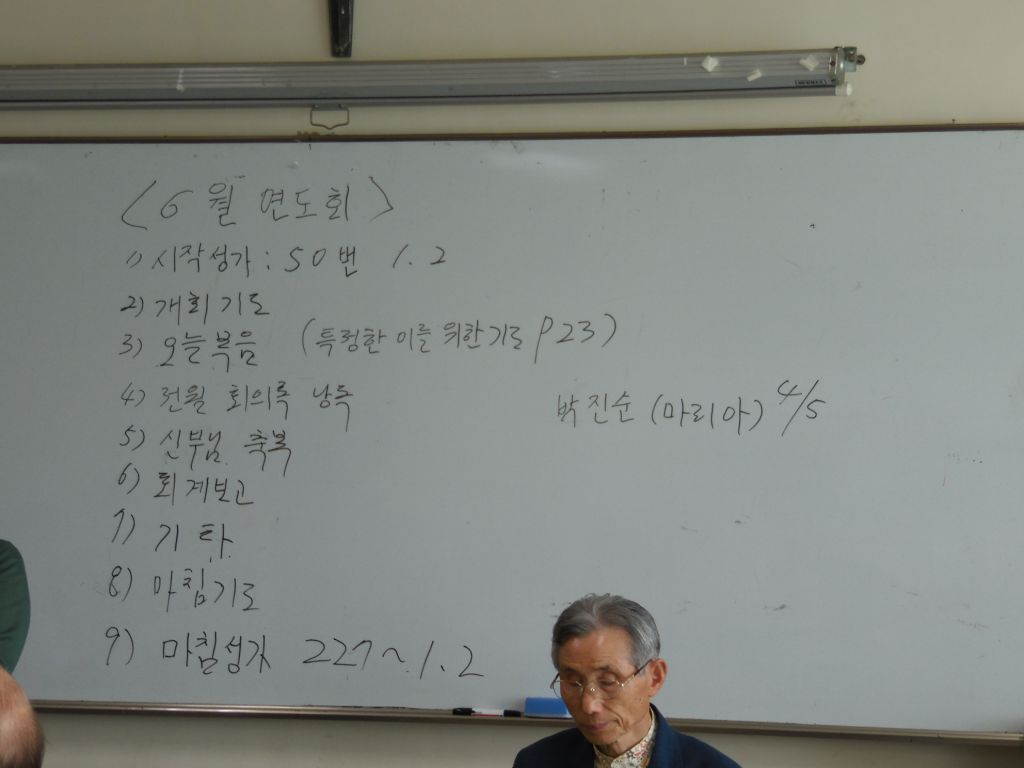 〈6월 연도회〉
1) 시작성가: 50번 1.2
2) 개회기도
3) 오늘복음 (특령한 이를 위한기도 P23)
4) 전월 회의록 낭독
박진순 (마리아) 4/5
5) 신부님 축복
6) 회계보고
7) 기타
8) 마침기도
9) 마침성가 227~1.2